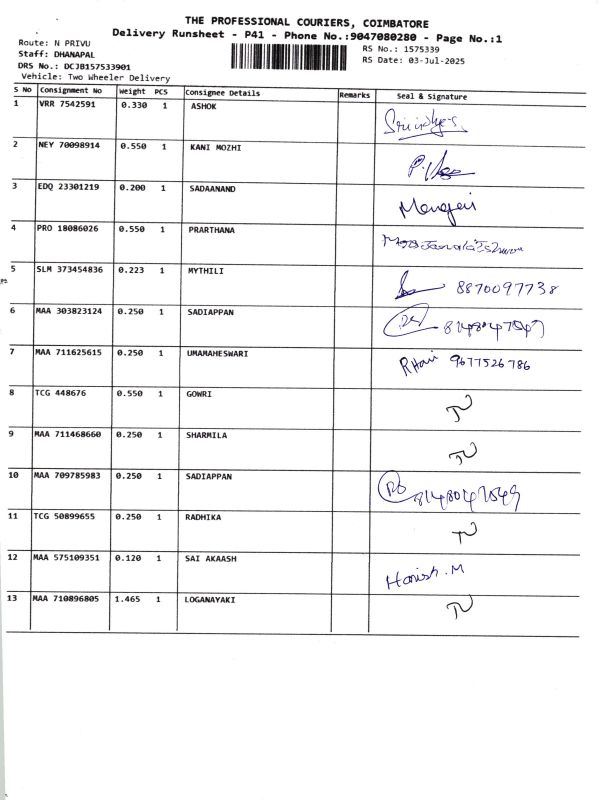 THE PROFESSIONAL COURIERS, COIMBATORE
Delivery Runsheet - P41 - Phone No.:9047080280 - Page No.:1
Route: N PRIVU
Staff: DHANAPAL
DRS No.: DCJB157533901
Vehicle: Two Wheeler Delivery
RS No.: 1575339
RS Date: 03-Jul-2025
S No Consignment No Weight PCS Consignee Details Remarks Seal & Signature
1 VRR 7542591 0.330 1 ASHOK
2 NEY 70098914 0.550 1 KANI MOZHI
3 EDQ 23301219 0.200 1 SADAANAND
4 PRO 18086026 0.550 1 PRARTHANA
5 SLM 373454836 0.223 1 MYTHILI 8870097738
6 MAA 303823124 0.250 1 SADIAPPAN
7 MAA 711625615 0.250 1 UMAMAHESWARI R Hari 9677526786
8 TCG 448676 0.550 1 GOWRI
9 MAA 711468660 0.250 1 SHARMILA
10 MAA 709785983 0.250 1 SADIAPPAN
11 TCG 50899655 0.250 1 RADHIKA
12 MAA 575109351 0.120 1 SAI AKAASH Harish.M
13 MAA 710896805 1.465 1 LOGANAYAKI